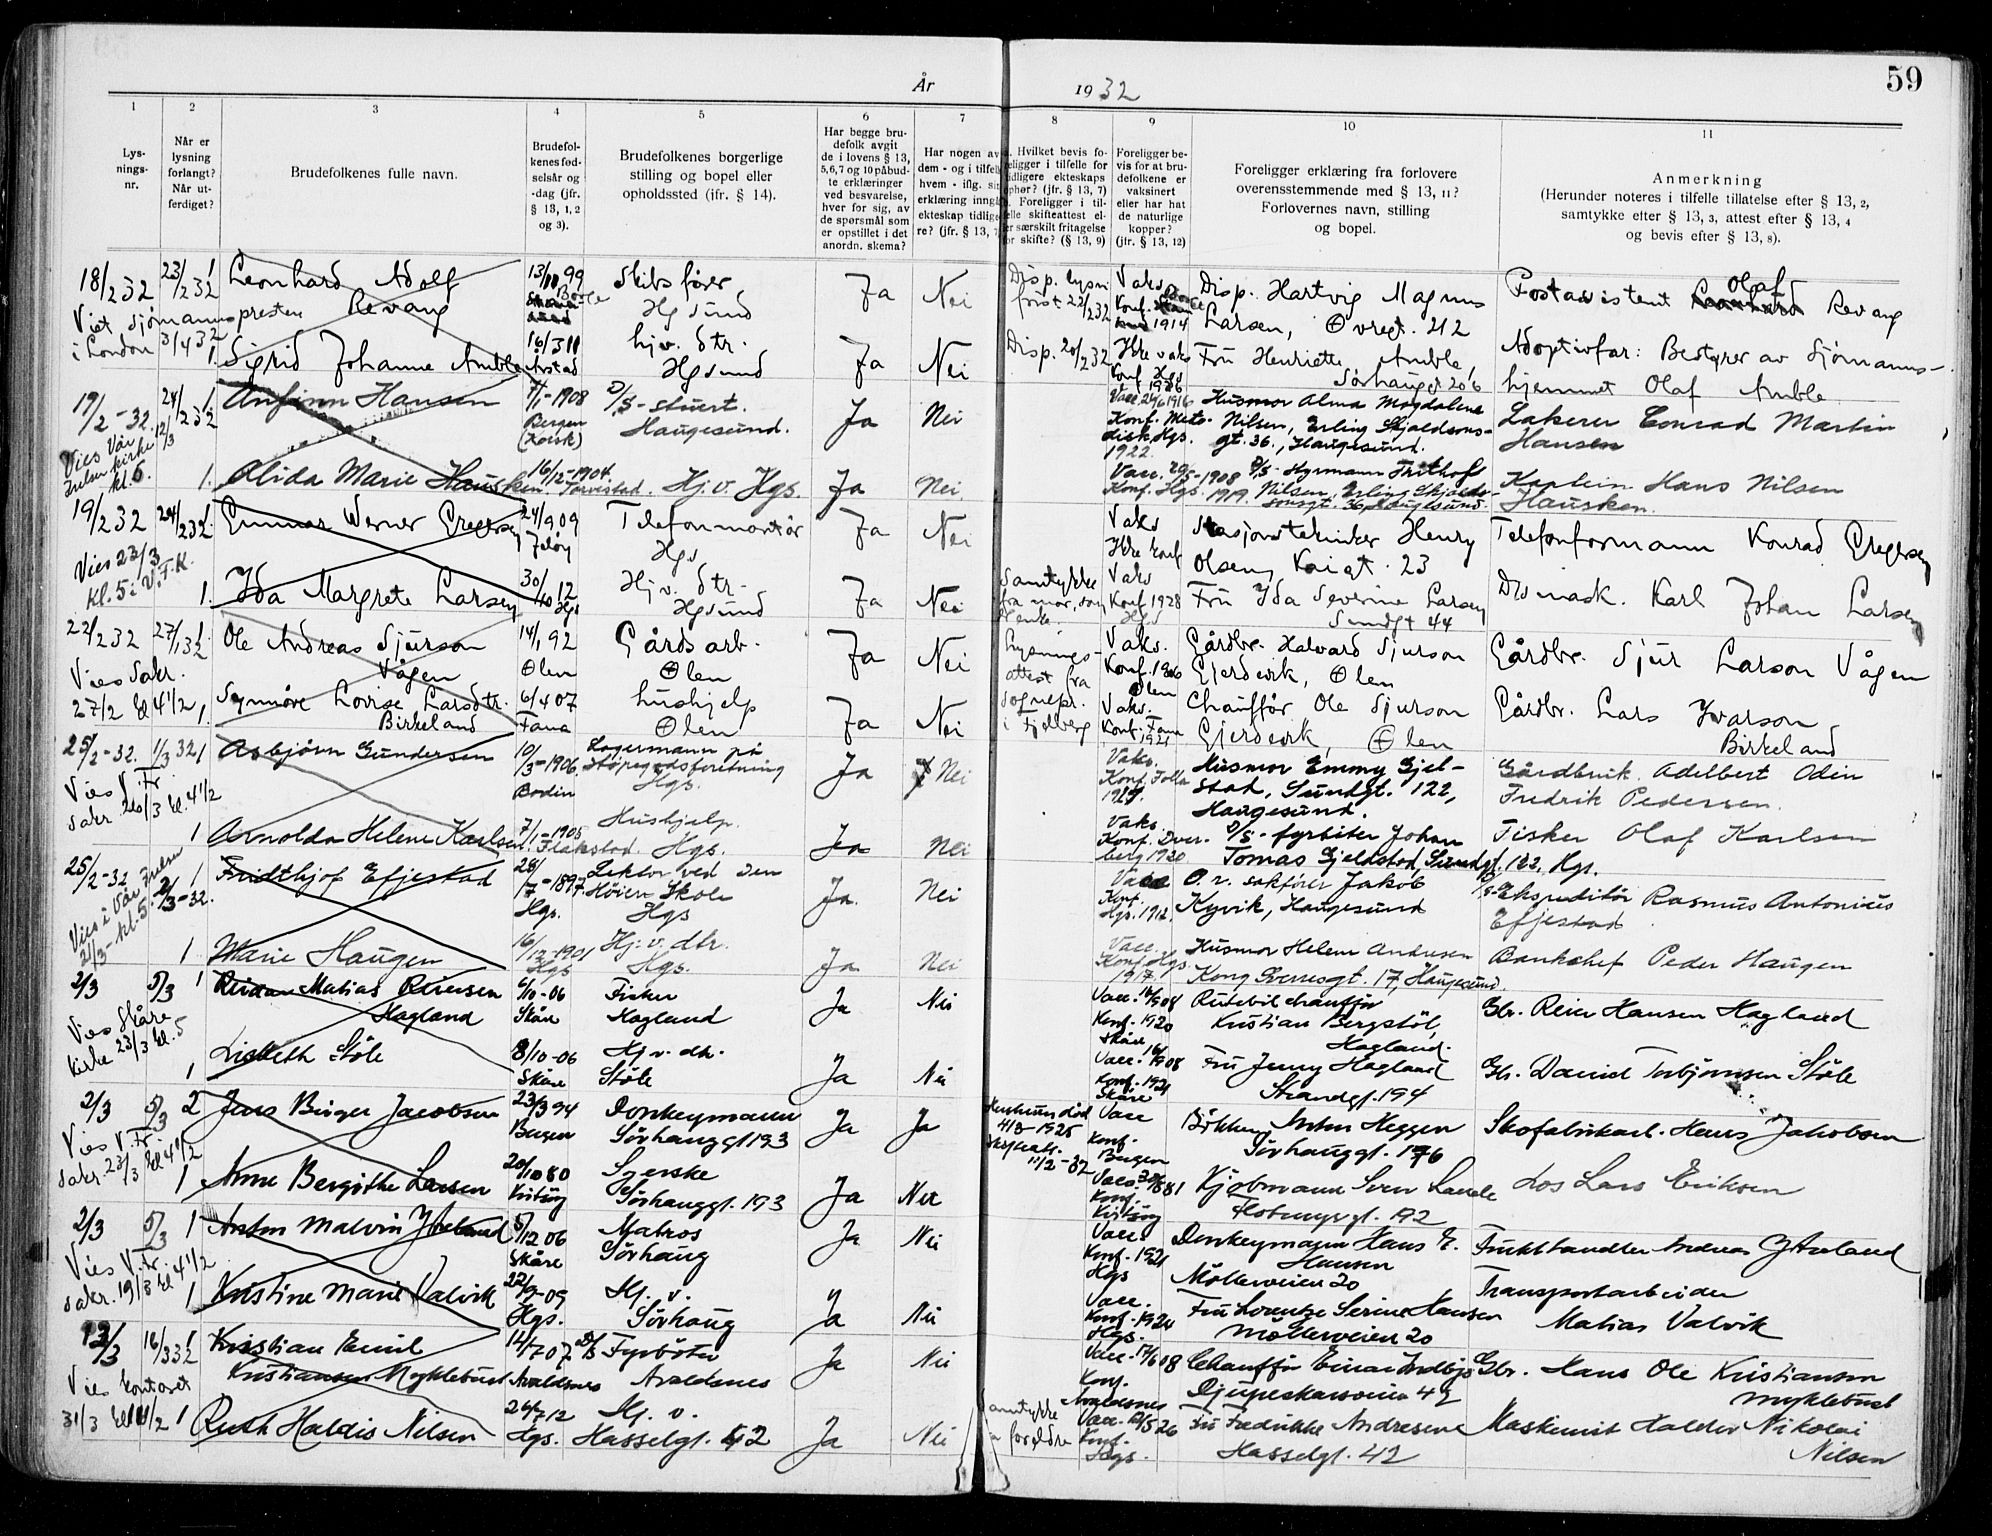 59
År 1932
1
2
3
4
5
6
7
8
9
10
11
Lys-
nings-
nr.
Når er
lysning
forlangt?
Når ut-
ferdiget?
Brudefolkenes fulle navn.
Brudefol-
kenes fød-
selsår og
-dag (jfr.
§ 13, 1, 2
og 3).
Brudefolkenes borgerlige
stilling og bopel eller
opholdssted (ifr. § 14).
Har begge bru-
defolk avgit
de i lovens § 13,
5,6,7 og 10 påbud-
te erklæringer
ved besvarelse,
hver for sig, av
de spørsmål som
er opstillet i det
anordn. skema?
Har nogen av
dem - og i tilfelle
hvem - iflg. sin
erklæring inngått
ekteskap tidlige-
re? (jfr. § 13, 7)
Hvilket bevis fo-
religger i tilfelle for
tidligere ekteskaps
ophør? (jfr. § 13, 7)
Foreligger i til-
felle skifteattest el-
er særskilt fritagelse
for skifte? (§ 13, 9)
Foreligger be-
vis for at bru-
defolkene er
vaksinert
eller har hat
de naturlige
kopper?
(jfr. § 13, 12)
Foreligger erklæring fra forlovere
overensstemmende med § 13, 11?
Forlovernes navn, stilling
og bopel.
Anmerkning
(Herunder noteres i tilfelle tillatelse efter § 13, 2,
samtykke efter § 13, 3, attest efter § 13, 4
og bevis efter § 13, 8).
18/2 32 23/2 32 1 Leonhard Adolf 13/11 99 Skibsfører Ja Nei Disp. lysn. Vaks. Disp. Hartvig Magnus Postassistent Olaf Revang
Viet sjømannspresten Revang Hgsund frist 22/2 32 Konf. 1914 Larsen, Øvregt. 212
i London 3/4 32 1. Sigrid Johanne Amble 16/3 11 Årstad hjv. dtr. Hgsund Ja Nei Disp. 20/2 32 Ikke vaks Konf. Hgs 1926 Fru Henriette Amble, Sørhauggt 206 Adoptivfar: Bestyrer av Sjømanns-
hjemmet Olaf Amble
19/2-32. 24/2 32 1 Anfinn Hansen 1/1-1908 Bergen (Korsk) D/S-stuert. Haugesund. Ja Nei Vacc. 24/6 1916 Konf. Meto-disk, Hgs. 1922. Husmor Alma Magdalena Nilsen, Erling Skjaldsons-gt. 36, Haugesund. Lakerer Conrad Martin Hansen
Vies Vår Frelsers kirke 12/3 kl. 5. 1. Alida Marie Hausken 16/12-1904. Torvestad. Hj.v. Hgs. Ja Nei Vacc. 1908 Konf. Hgs. 1919. D/S-Hyrmann Frithof Nilsen, Erling Skjalds-sonsgt. 36 Haugesund. Kaptein Hans Nilsen Hausken.
19/2 32 24/2 32 1. Gunnar Werner Gregersen 24/9 09 Jeløy Telefonmontør Hgs Ja Nei Vaks Ikke konf Stasjonstekniker Henry Olsen, Kaigt. 23 Telefonformann Konrad Gregersen
Vies 23/3 kl. 5 i V.F.K. 1. Ida Margrete Larsen 30/10 12 Hgs Hj.v. dtr. Hgsund Ja Nei Samtykke fra mor, som enke. Vaks Konf 1928 Hgs Fru Ida Severine Larsen Sundgt 44 D/S mask. Karl Johan Larsen
22/2 32 27/1 32 1. Ole Andreas Sjurson Vågen 14/1 92 Ølen Gårdsarb. Ølen Ja Nei Lysnings-attest fra sognepr. i Fjelberg Vaks. Konf. 1906 Ølen Gårdbr. Halvard Sjurson Gjerdevik, Ølen Gårdbr. Sjur Larson Vågen
Vies Sakr. 27/2 kl 4 1/2 1. Synnøve Lovise Larsdtr. Birkeland 6/4 07 Fana hushjelp Ølen Ja Nei Vaks. Konf. Fana 1921 Chauffør Ole Sjurson Gjerdevik, Ølen Gårdbr. Lars Ivarson Birkeland
25/2-32. 1/3 32 1 Asbjørn Gundersen 10/3-1906 Bodin Lagermann på støpegodsforretning Hgs. Ja Nei Vaks. Konf. Folla 1921. Husmor Emmy Gjel-stad, Sundgt. 122, Haugesund. Gårdbruk. Adelbert Odin Fredrik Pedersen.
Vies V. Fr. sakr. 26/3 kl. 4 1/2 1 Arnolda Helene Karlsen 7/1-1905 Flakstad Hushjelp. Hgs. Ja Nei Vaks Konf. Dver-berg 1920 D/S-fyrbøter Johan Tomas Gjeldstad, Sundgt. 122, Hgs. Fisker Olaf Karlsen
25/2-32 2/3-32. 1 Fridthjof Effestad 28/7-1897 Hgs. Lektor ved den Høiere Skole Hgs Ja. Nei Vacc Konf. Hgs. 1912 O.r. sakfører Jakob Kyvik, Haugesund D/S-Ekspeditør Rasmus Antonius Effestad
Vies i Vår Frelser 21/3-kl. 5. 1 Marie Haugen 16/12-1901 Hgs Hj.v. dtr. Hgs. Ja Nei Vacc. Konf. Hgs. 1917 Husmor Helene Andersen Kong Sverresgt. 17, Haugesund. Bankchef Peder Haugen
2/3 5/3 1 Reidar Matias Reiersen Hagland 6/10-06 Skåre Fisker Hagland Ja Nei Vacc. 14/9 08 Konf. 1920 Skåre Rutebilchauffør Kristian Bergstøl, Hagland. Gbr. Reier Hansen Hagland
Vies Skåre kirke 23/3 kl. 5 1 Lisbeth Støle 8/10-06 Skåre Hj.v. dtr. Støle Ja Nei Vacc. 1908 Konf. 1921 Skåre Fru Jenny Hagland Strandgt. 194 Gbr. Daniel Torbjørnsen Støle
2/3 5/3 2 Jens Birger Jacobsen 23/3 94 Bergen Donkeymann Sørhauggt 193 Ja Ja Hustrun død 4/3-1925 Skifteatt. 11/2-32 Vacc Konf. Bergen Bøkker Anton Heggen Sørhauggt. 176 Skofabrikarb. Hans Jakobsen
Vies V. Fr. sakr. 23/3 kl 4 1/2 1 Anne Bergitte Larsen 20/10 80 Syerske Sørhauggt. 193 Ja Nei Vacc. 1881 Konf. Kjøbmann Sven Lande Flotmyrgt. 192 Los Lars Eriksen
2/3 5/3 1 Anton Malvin Ytreland 5/12 06 Skåre Matros Sørhaug Ja Nei Vacc. Konf. 1921 Hgs Donkeymann Hans E. Hansen Møllerveien 20 Frukthandler Andreas Ytreland
Vies V. Fr. sakr. 19/3 kl. 4 1/2 1 Kristine Marie Valvik 22/9-09 Hgs. Hj. v. Sørhaug Ja Nei Vacc. Konf. 1924 Hgs. Fru Lorentze Serine Hansen Møllerveien 20 Transportarbeider Matias Valvik
12/3 16/3 32 1 Kristian Emil Kristiansen Myklebust 14/7 07 Avaldsnes D/S Fyrbøter Avaldsnes Ja Nei Vacc. 17/6 08 Konf. Avaldsnes Chauffør Einar Djupeskarveien 42 Gbr. Hans Ole Kristiansen Myklebust
Vies kontoret 31/3 kl 11 1/2 1 Ruth Haldis Nilsen 26/7 12 Hgs. Hj. v. Hasselgt. 42 Ja Nei Samtykke foreldre Vacc. 12/5 26 Konf. Hgs. Fru Fredrikke Andresen Hasselgt. 42 Maskinist Haldor Nikolai Nilsen